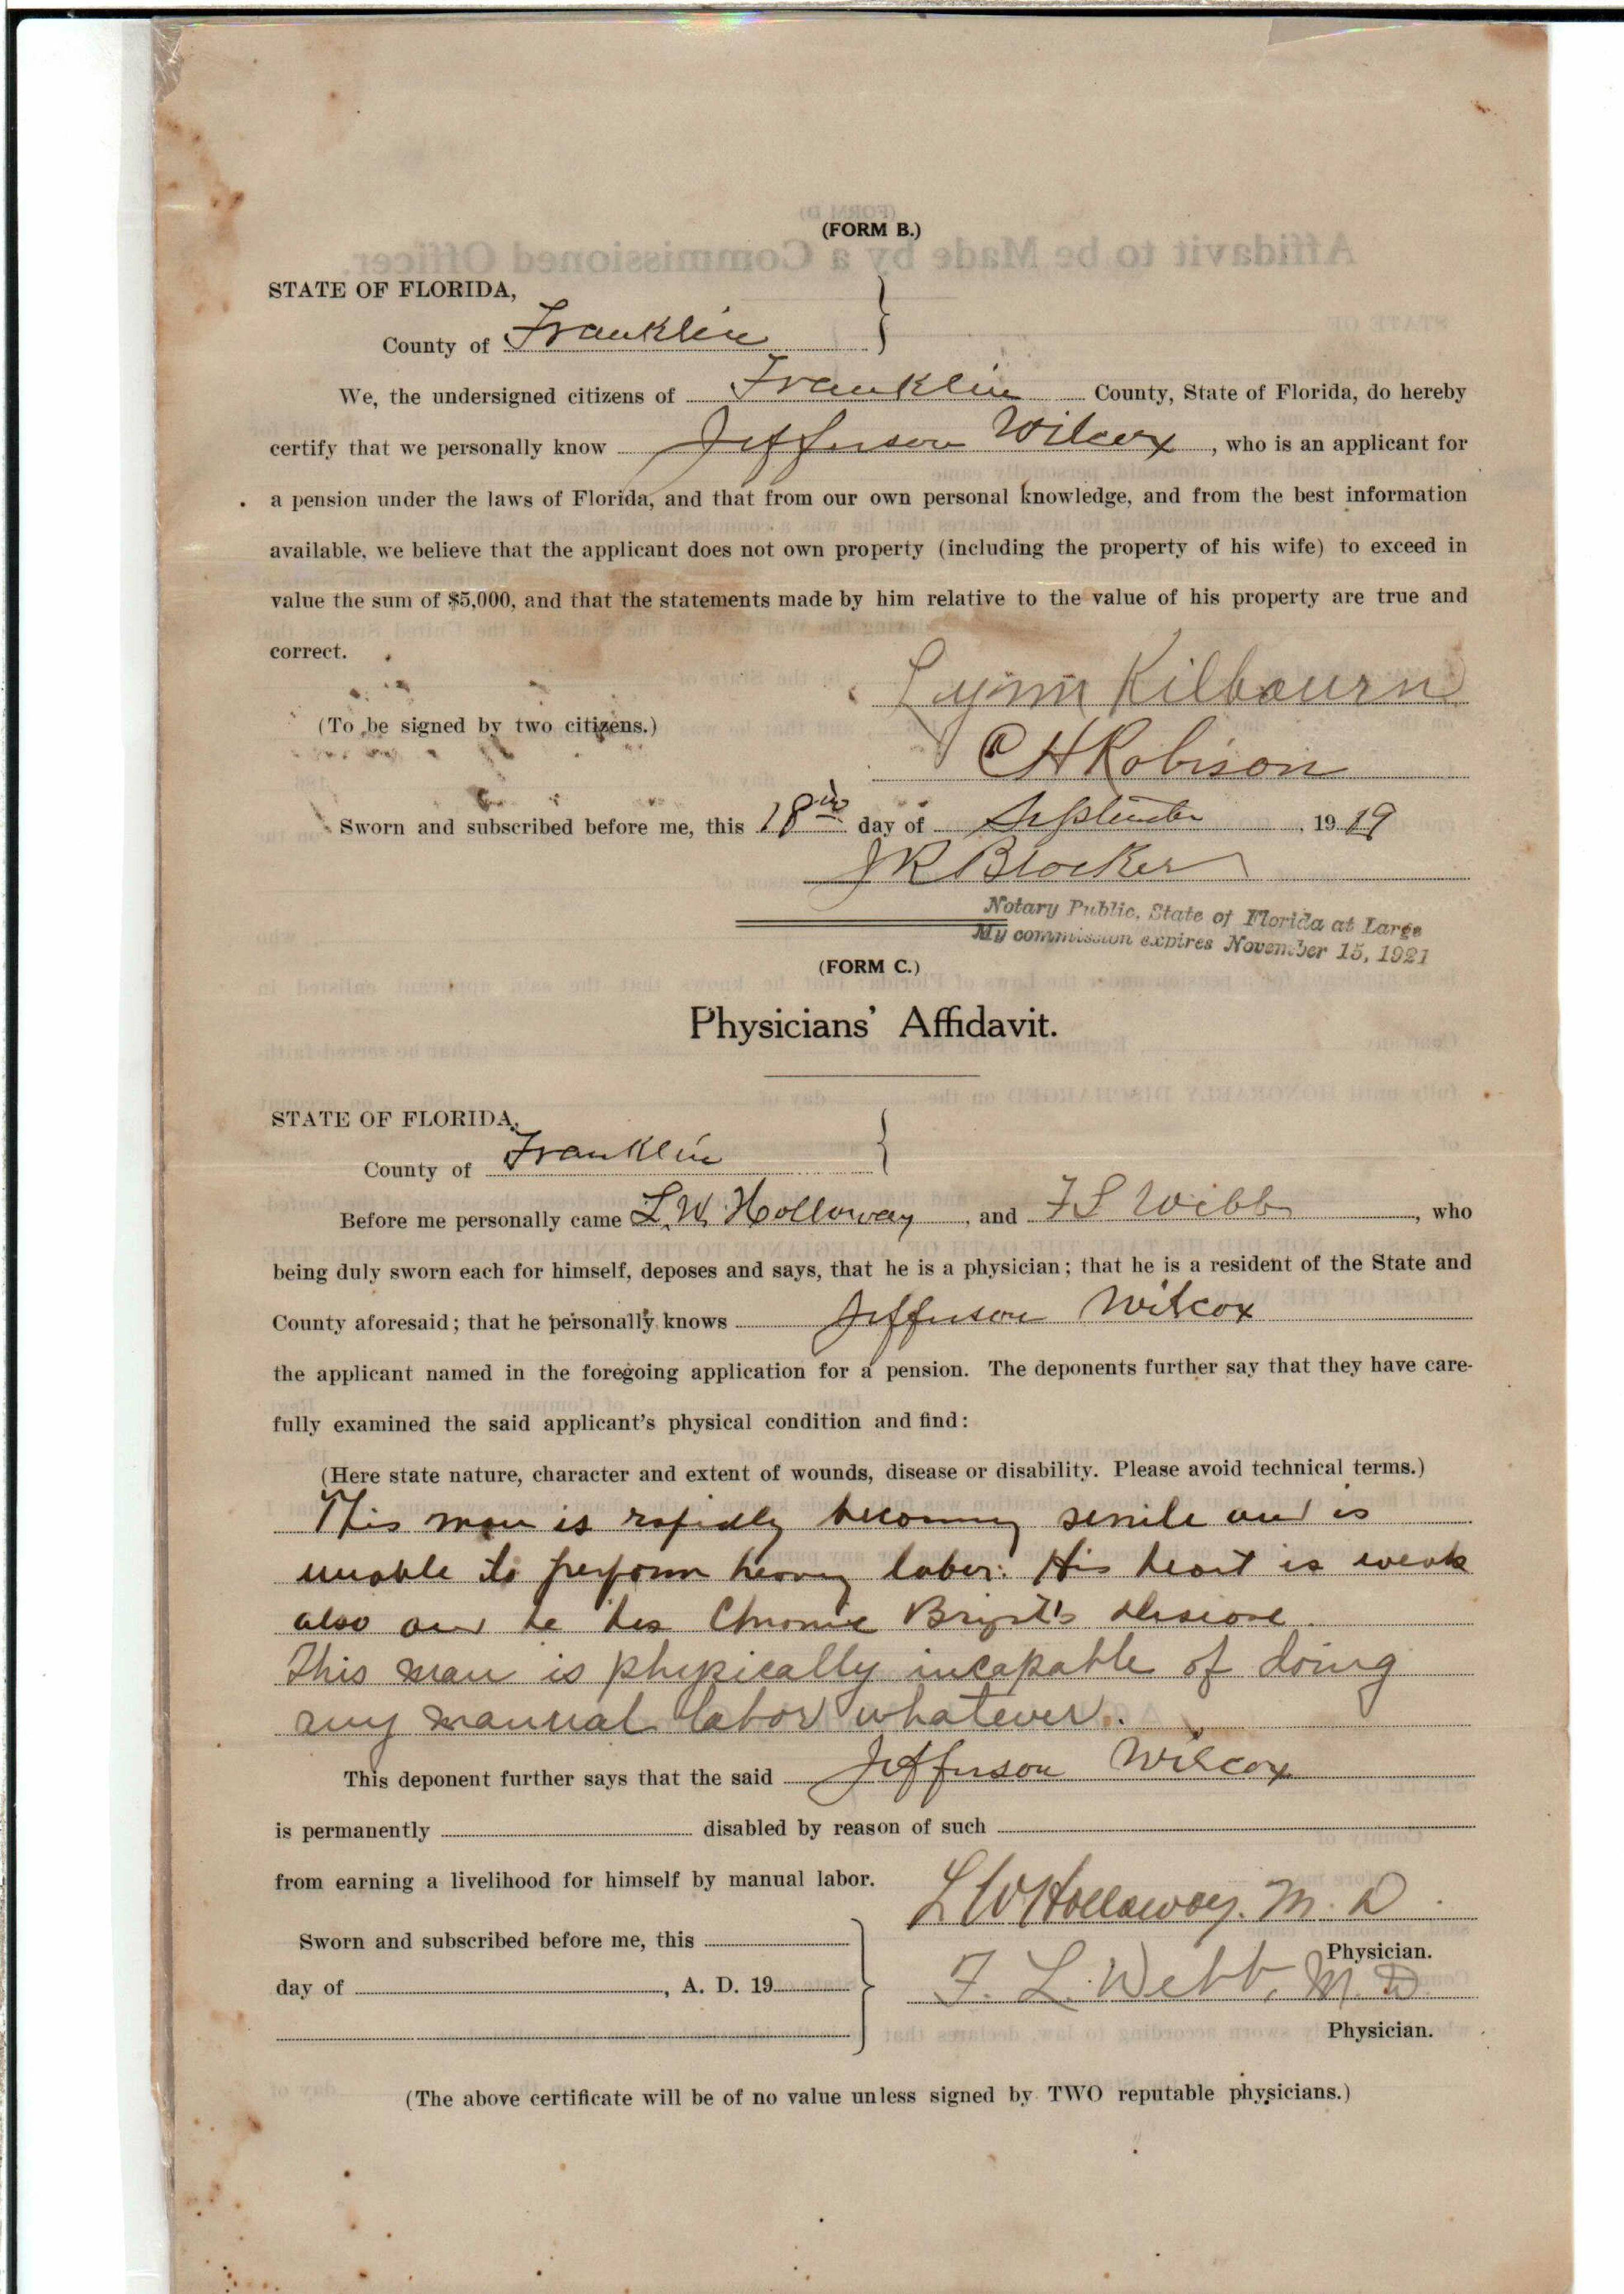 (FORM B.)
STATE OF FLORIDA,
County of Franklin
We, the undersigned citizens of Franklin County, State of Florida, do hereby
certify that we personally know Jefferson Wilcox, who is an applicant for
a pension under the laws of Florida, and that from our own personal knowledge, and from the best information
available, we believe that the applicant does not own property (including the property of his wife) to exceed in
value the sum of $5,000, and that the statements made by him relative to the value of his property are true and
correct.
Lynn Kilbourn
(To be signed by two citizens.)
C H Robison
Sworn and subscribed before me, this 18th day of September, 1919
J R Blocker
Notary Public, State of Florida at Large
My commission expires November 15, 1921
(FORM C.)
Physicians' Affidavit.
STATE OF FLORIDA,
County of Franklin
Before me personally came L. W. Holloway, and F S Webb, who
being duly sworn each for himself, deposes and says, that he is a physician; that he is a resident of the State and
County aforesaid; that he personally knows Jefferson Wilcox
the applicant named in the foregoing application for a pension. The deponents further say that they have care-
fully examined the said applicant's physical condition and find:
(Here state nature, character and extent of wounds, disease or disability. Please avoid technical terms.)
This man is rapidly becoming senile and is
unable to perform heavy labor. His heart is weak
also and he has Chronic Bright's disease.
This man is physically incapable of doing
any manual labor whatever.
This deponent further says that the said Jefferson Wilcox
is permanently disabled by reason of such
from earning a livelihood for himself by manual labor.
L W Holloway. M. D.
Sworn and subscribed before me, this
Physician.
day of , A. D. 19
F. L. Webb, M. D.
Physician.
(The above certificate will be of no value unless signed by TWO reputable physicians.)